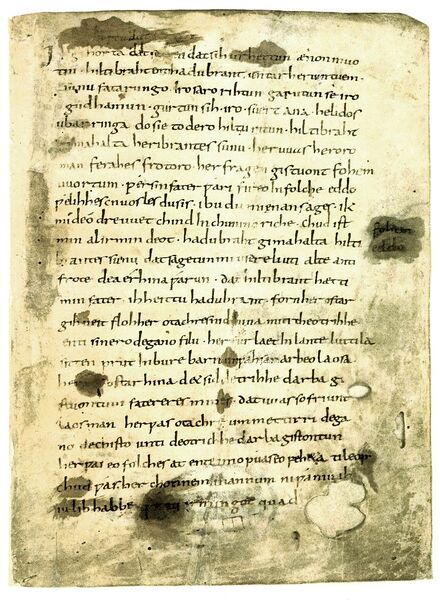 Ik gihorta dat seggen dat sih urhettun ænon muo
tin · hiltibraht enti haðubrant · untar heriun tuem ·
sunu fatarungo · iro saro rihtun garutun se iro
guðhamun · gurtun sih · iro · suert ana · helidos
ubar ringa do sie to dero hiltu ritun · hiltibraht
gimahalta heribrantes sunu · her uuas heroro
man ferahes frotoro · her fragen gistuont fohem
uuortum · ƿer sin fater ƿari fireo in folche eddo
ƿelihhes cnuosles du sis · ibu du mi enan sages · ik
mi deo dre uuet chind in chunincriche · chud ist
min al irmin deot · hadubraht gimahalta hilti
brantes sunu dat sagetun mi usere liuti alte anti
frote dea er hina ƿarun · dat hiltibrant hætti
min fater · ih heittu hadubrant · forn her ostar
gihueit floh her otachres nid hina miti theotrihhe
enti sinero degano filu · her furlaet in lante luttila
sitten prut in bure barn unƿahsan arbeo laosa
her raet ostar hina det sid detrihhe darba gi
stuontum fatereres mines · dat uuas so friunt
laos man her ƿas otachre ummet tirri dega
no dechisto unti deotrichhe darba gistontun
her ƿas eo folches at ente imo ƿuas eo ƿeheta ti leop
chud ƿas her chonnem mannum ni ƿaniu ih
iu lib habbe irmingot quad